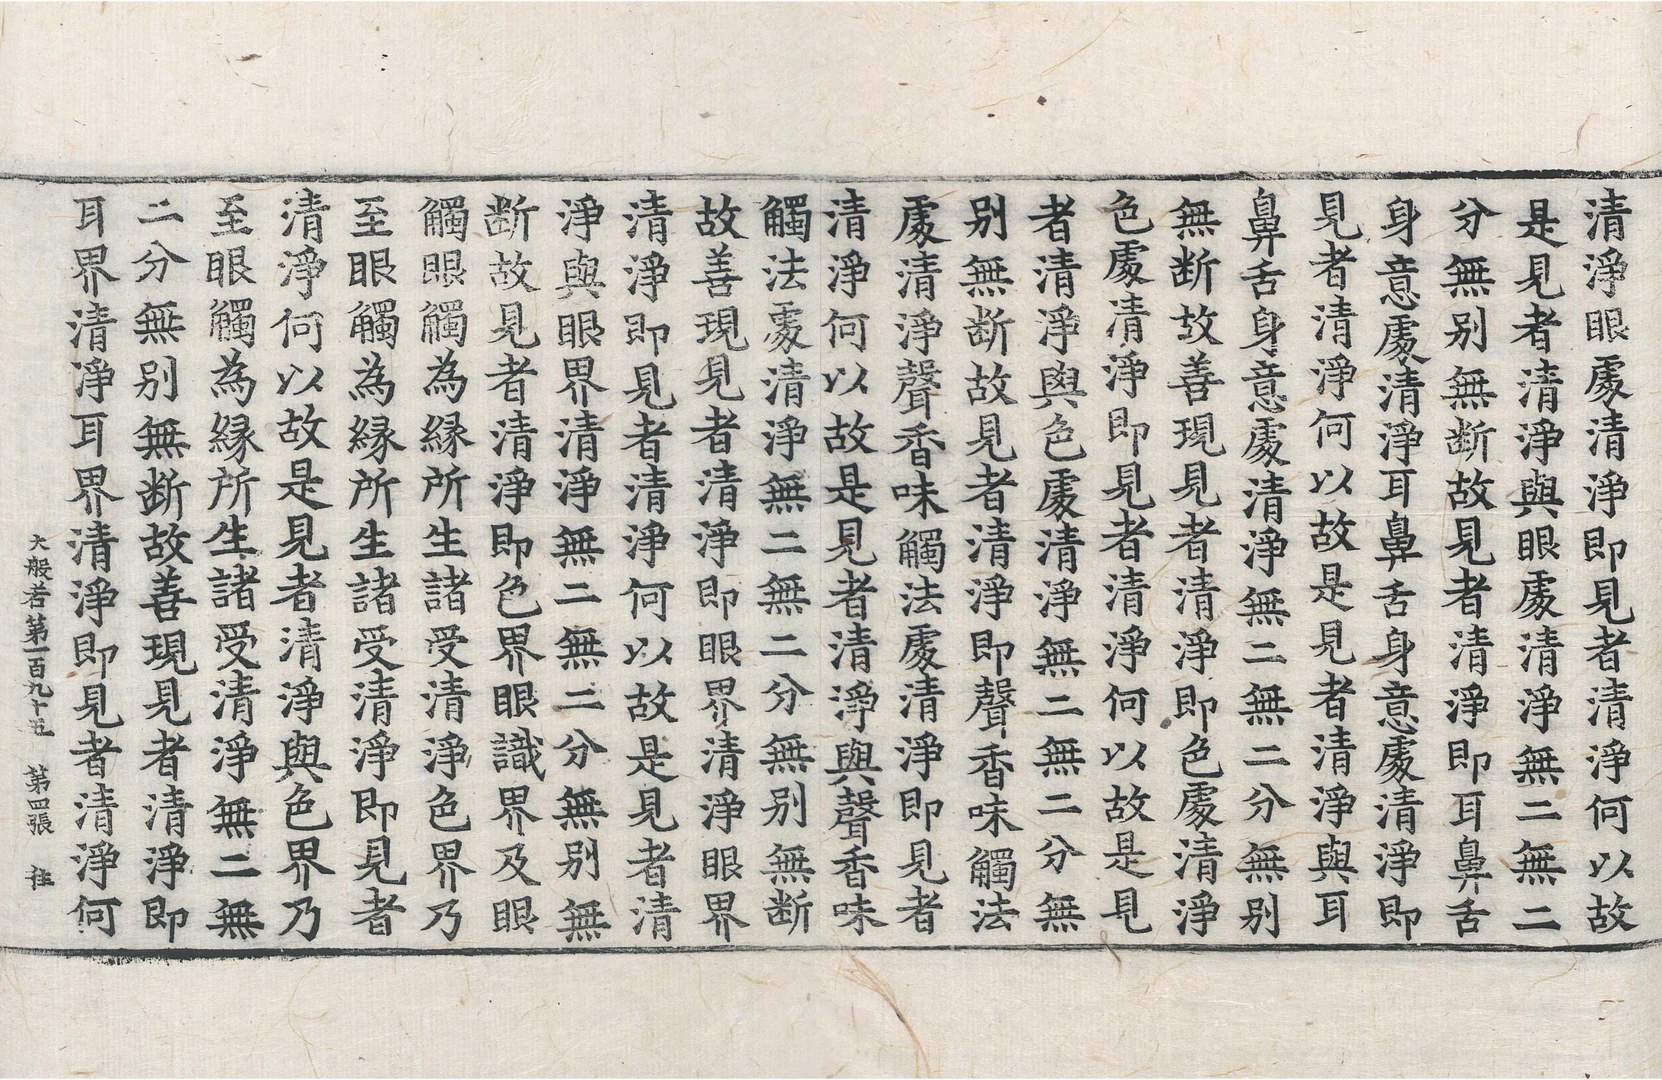 清淨眼處清淨即見者清淨何以故
是見者清淨與眼處清淨無二無二
分無别無断故見者清淨即耳鼻舌
身意處清淨耳鼻舌身意處清淨即
見者清淨何以故是見者清淨與耳
鼻舌身意處清淨無二無二分無别
無断故善現見者清淨即色處清淨
色處清淨即見者清淨何以故是見
者清淨與色處清淨無二無二分無
别無断故見者清淨即聲香味觸法
處清淨聲香味觸法處清淨即見者
清淨何以故是見者清淨與聲香味
觸法處清淨無二無二分無别無断
故善現見者清淨即眼界清淨眼界
清淨即見者清淨何以故是見者清
淨與眼界清淨無二無二分無别無
断故見者清淨即色界眼識界及眼
觸眼觸為縁所生諸受清淨色界乃
至眼觸為縁所生諸受清淨即見者
清淨何以故是見者清淨與色界乃
至眼觸為縁所生諸受清淨無二無
二分無别無断故善現見者清淨即
耳界清淨耳界清淨即見者清淨何
大般若第一百九十五 第四張